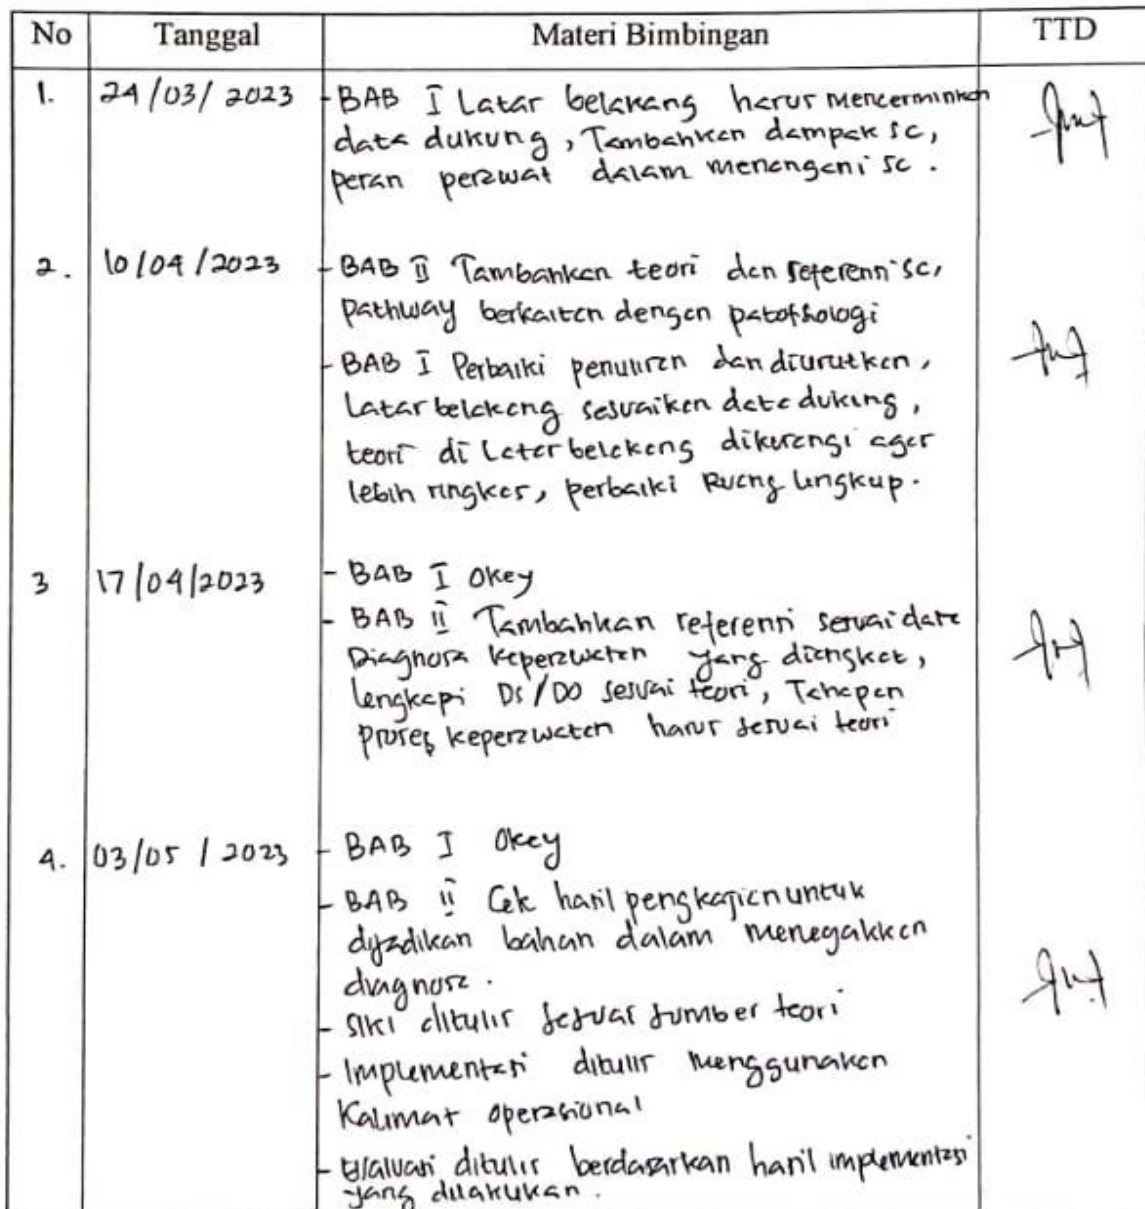 No Tanggal Materi Bimbingan TTD
1. 24/03/2023 - BAB I Latar belakang harus mencerminkan
data dukung, Tambahkan dampak sc,
peran perawat dalam menangani sc.
2. 10/04/2023 - BAB II Tambahkan teori dan referensi sc,
Pathway berkaitan dengan patofhologi
- BAB I Perbaiki penulisan dan diurutkan,
Latar belakang sesuaikan data dukung,
teori di Latar belakang dikurangi agar
lebih ringkas, perbaiki Ruang lingkup.
3 17/04/2023 - BAB I Okey
- BAB II Tambahkan referensi sesuai data
Diagnosa keperawatan yang diangkat,
lengkapi DS/DO sesuai teori, Tahapan
proses keperawatan harus sesuai teori
4. 03/05/2023 - BAB I Okey
- BAB II Cek hasil pengkajian untuk
dijadikan bahan dalam menegakkan
diagnosa.
- SIKI ditulis sesuai sumber teori
- Implementasi ditulis menggunakan
Kalimat operasional
- Evaluasi ditulis berdasarkan hasil implementasi
yang dilakukan.